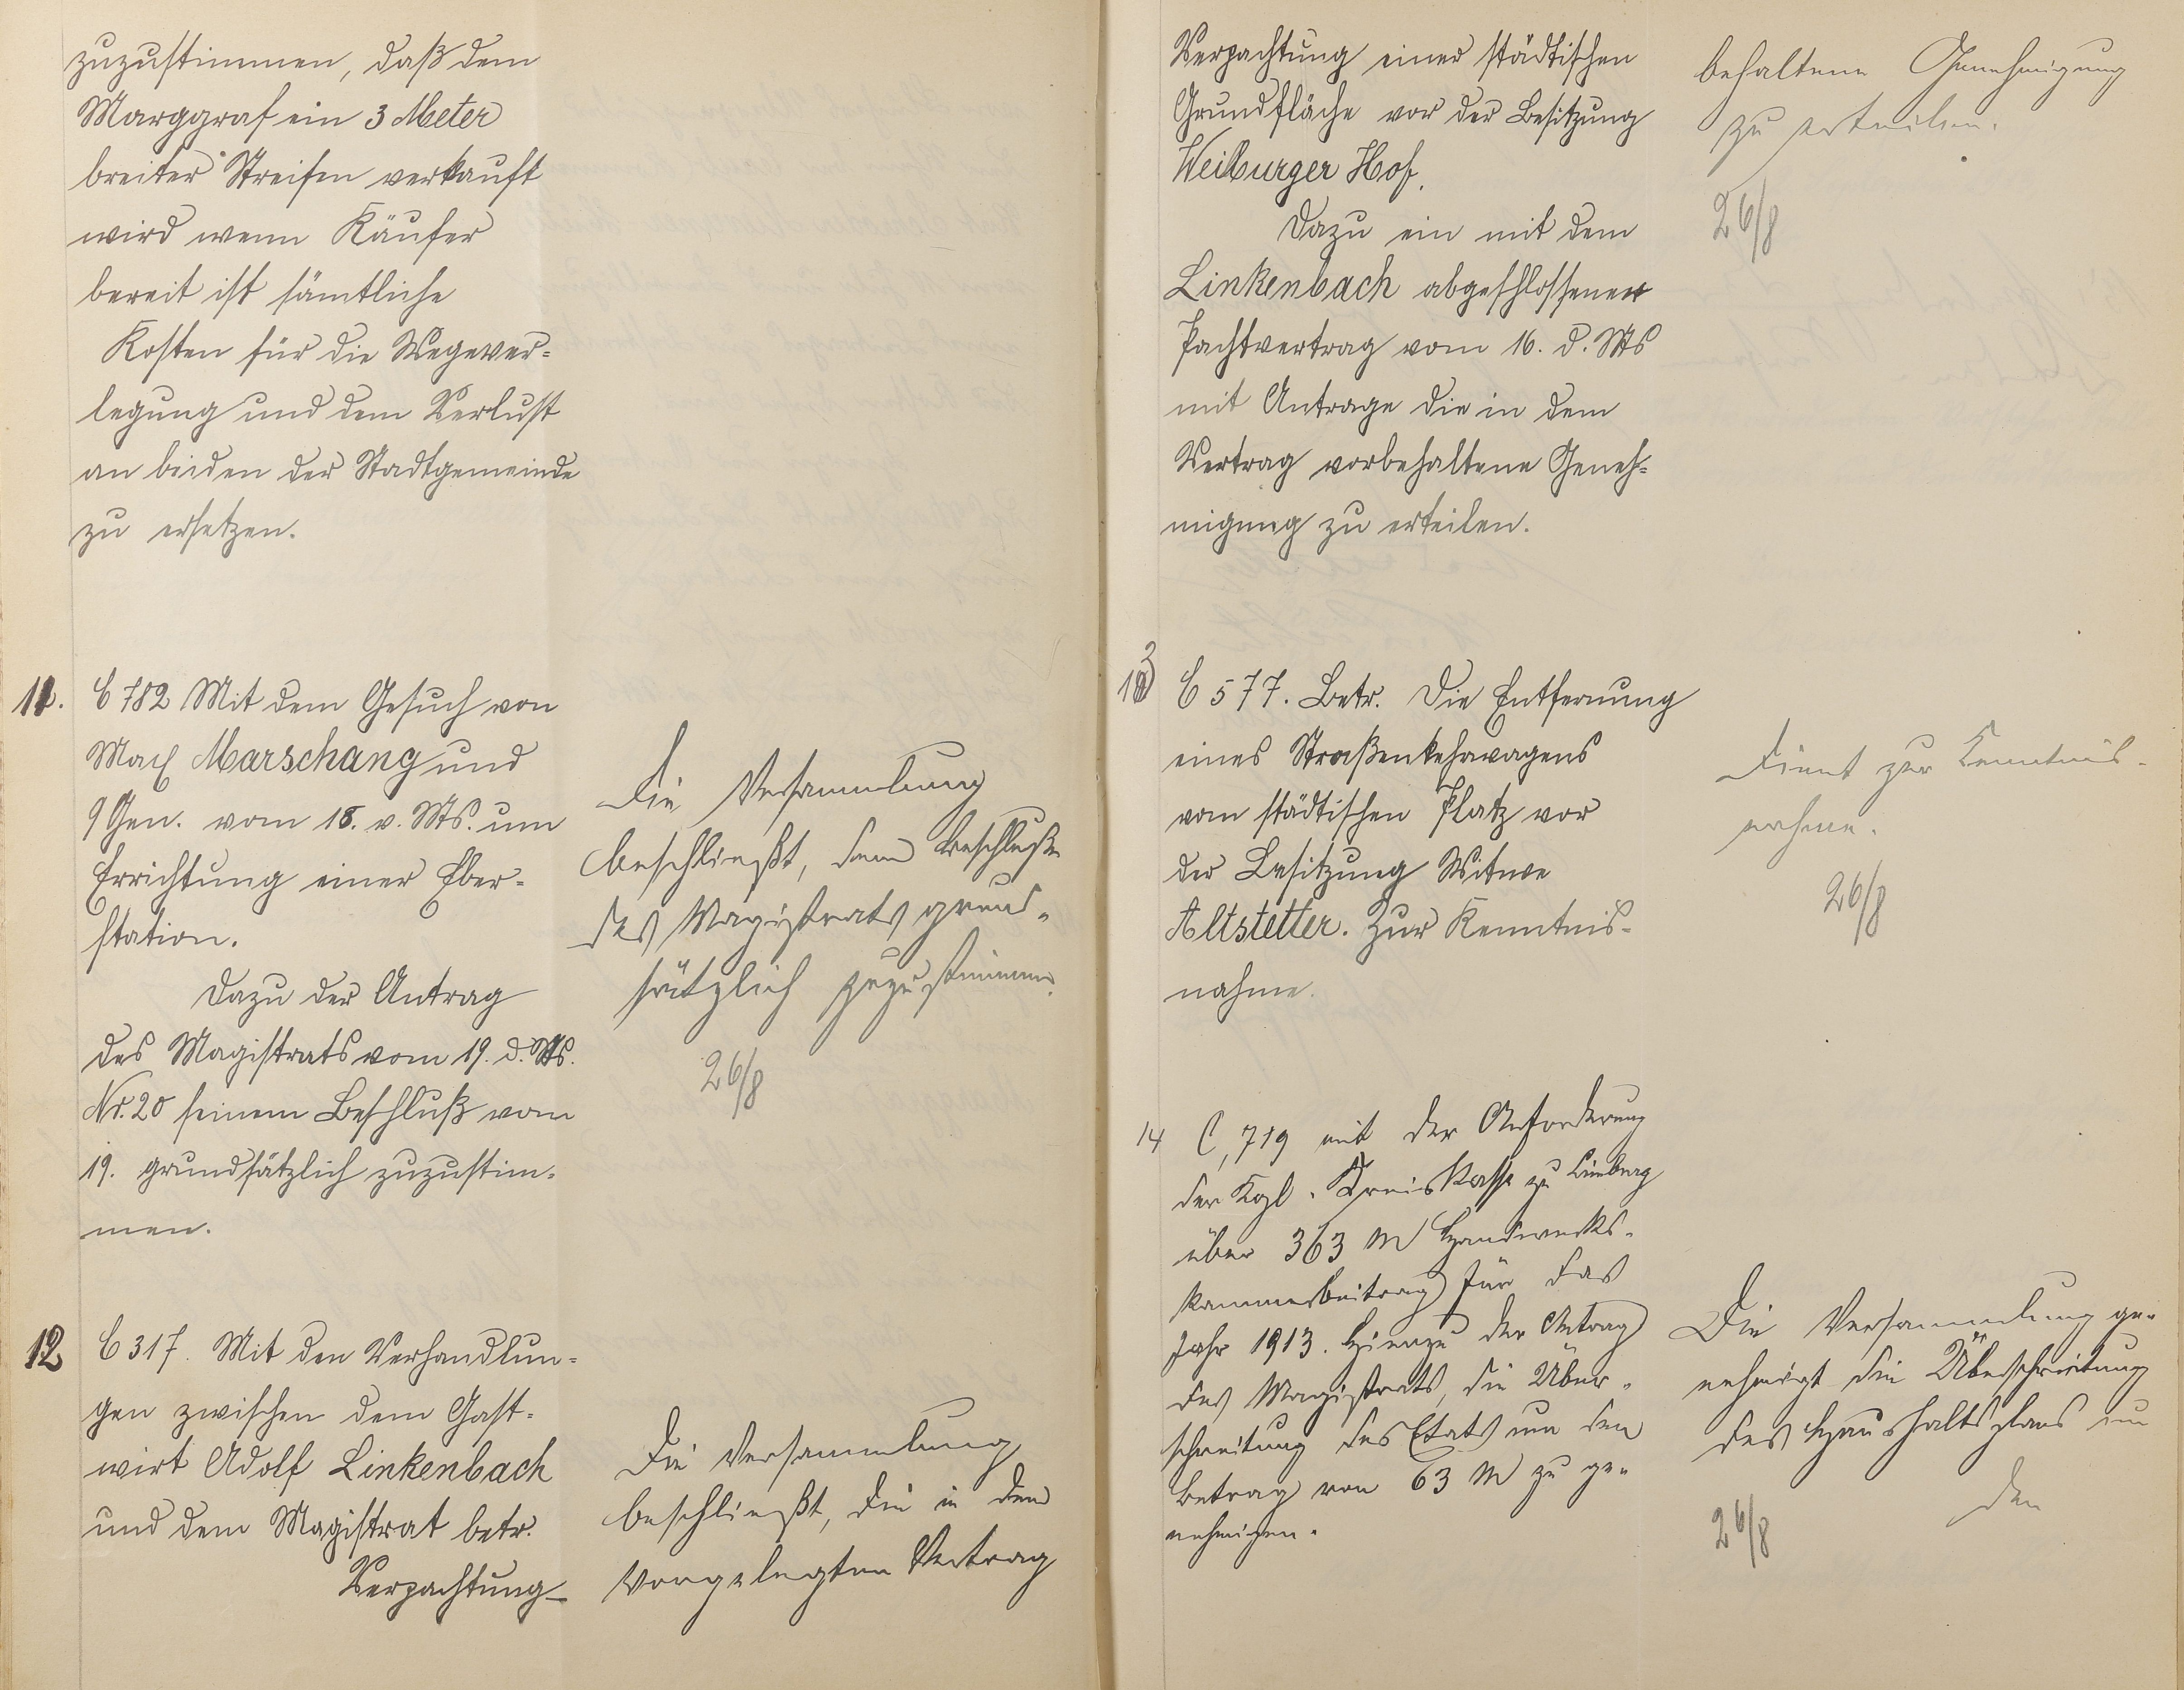 zuzustimmen, daß dem
Marggraf ein 3 Meter
breiter Streifen verkauft
wird wenn Käufer
bereit ist sämtliche
Kosten für die Wegever-
legung und dem Verlust
an beiden der Stadtgemeinde
zu ersetzen.
11. C 782 Mit dem Gesuch von
Marschang und
Gen. vom 18. v. Mts. um
Errichtung einer Eber-
station.
Dazu der Antrag
des Magistrats vom 19. d. Mts.
Nr. 20 seinem Beschluß vom
19. grundsätzlich zuzustim-
men.
Die Versammlung
beschließt, dem Beschluße
des Magistrats grund-
sätzlich zuzustimmen.
26/8
12 C 317. Mit den Verhandlun-
gen zwischen dem Gast-
wirt Adolf Linkenbach
und dem Magistrat betr.
Verpachtung
Die Versammlung
beschließt, die in dem
vorgelegten Vertrag
Verpachtung einer städtischen
Grundfläche vor der Besitzung
Weilburger Hof.
Dazu ein mit dem
Linkenbach abgeschlossener
Pachtvertrag vom 16. d. Mts
mit Antrage die in dem
Vertrag vorbehaltene Geneh-
migung zu erteilen.
behaltene Genehmigung
zu erteilen.
26/8
13 C 577. Betr. Die Entfernung
eines Straßenkehrwagens
vom städtischen Platz vor
der Besitzung Witwe
Altstetter. Zur Kenntnis-
nahme.
Dient zur Kenntnis-
nahme.
26/8
14 C, 719 mit der Anforderung
der Kgl. Kreiskasse zu Limburg
über 363 M Handwerks-
kammerbeitrag für das
Jahr 1913. Hierzu der Antrag
des Magistrats, die Über-
schreitung des Etats um den
Betrag von 63 M zu ge-
nehmigen.
Die Versammlung ge-
nehmigt die Überschreitung
des Haushaltsplans um
den
26/8